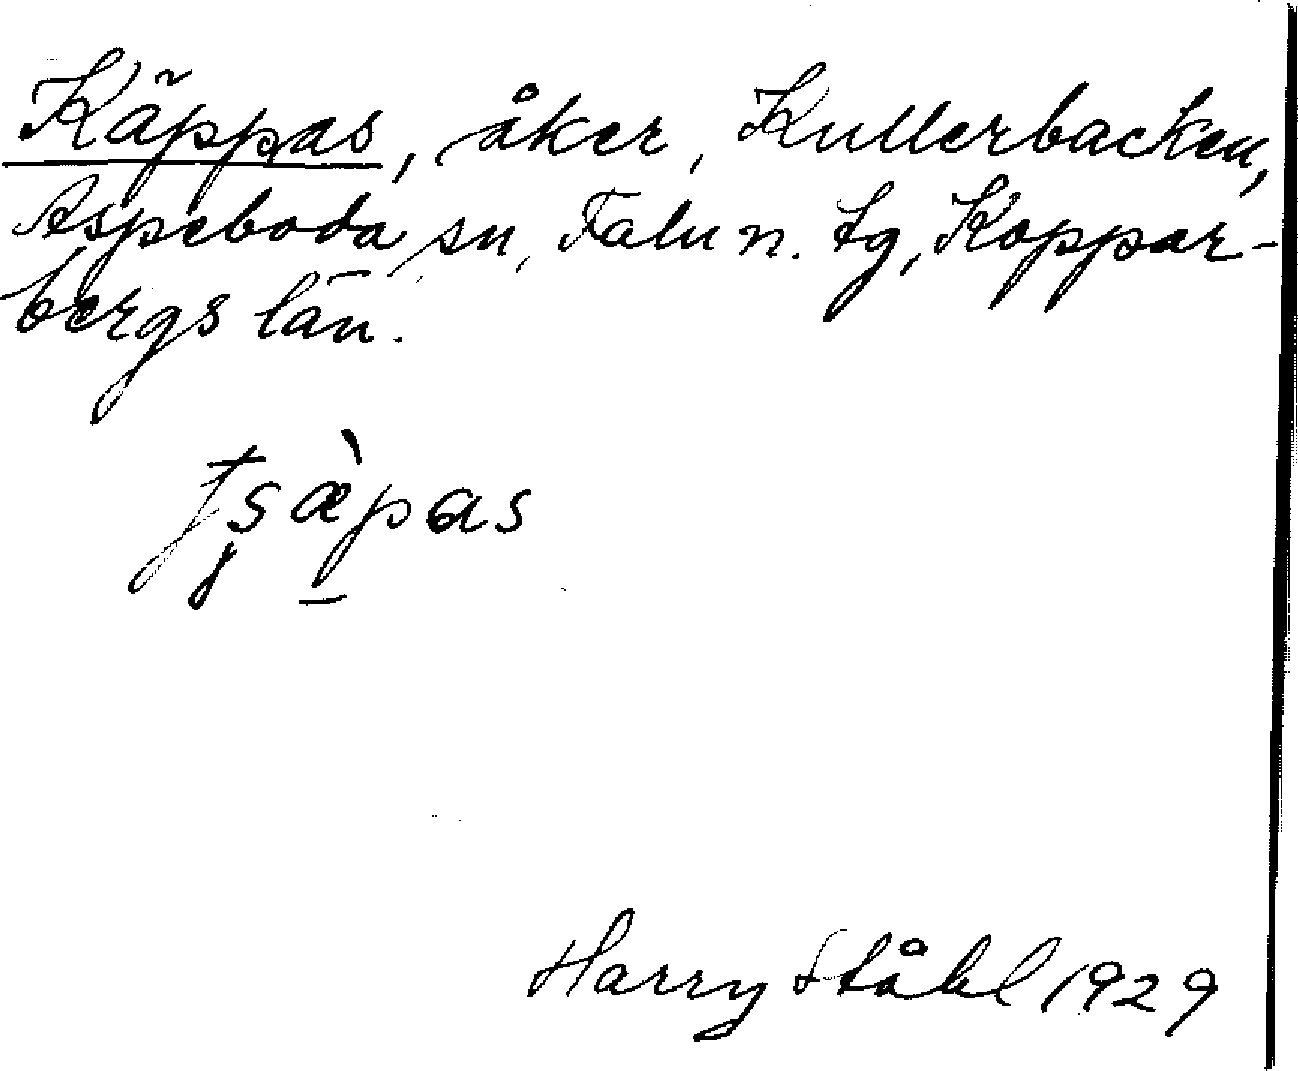 Käppas, åker, Kullerbacken,
Aspeboda sn, Falu n. tg, Koppar-
bergs län.
Harry Ståhl 1929